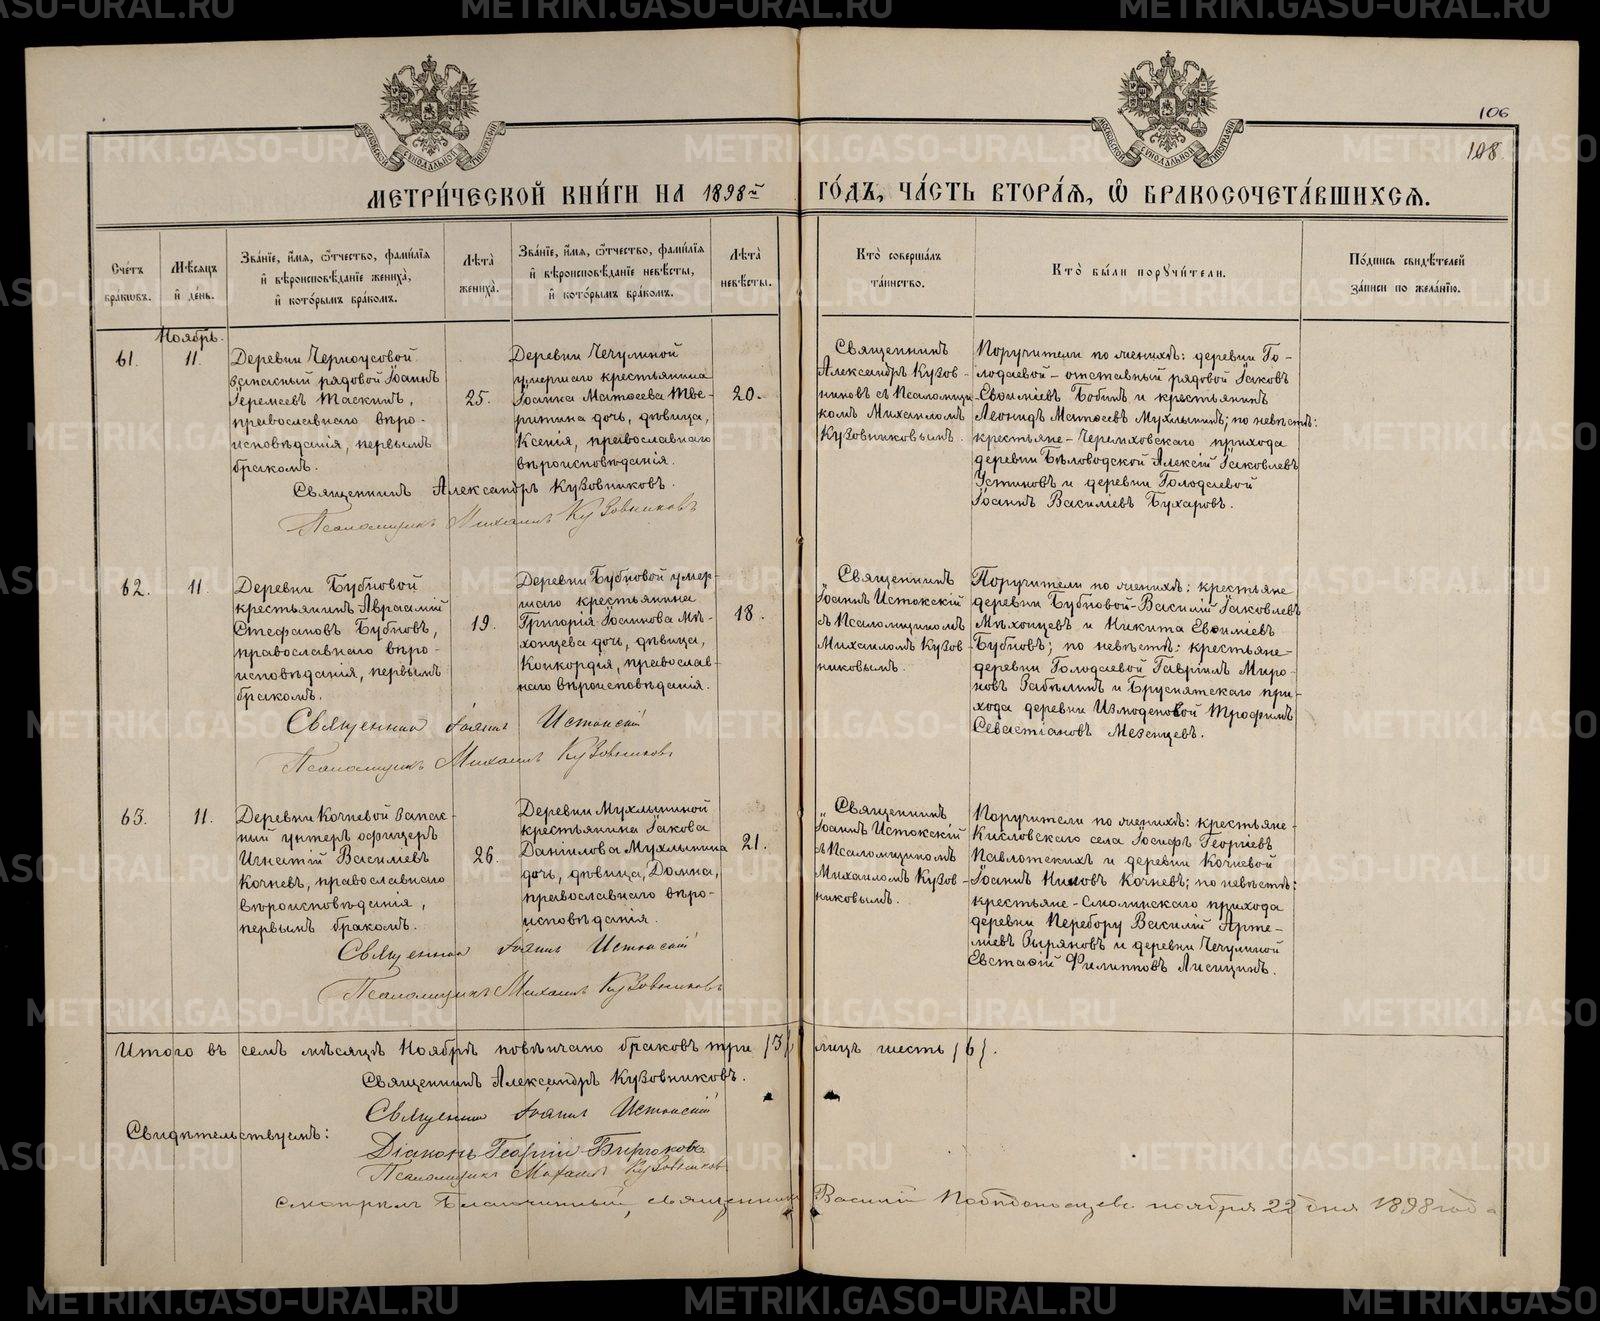 METRIKI.GASO-URAL.RU
106
108.
МЕТРИ́ЧЕСКОЙ КНИ́ГИ НА 1898й ГО́ДЪ, ЧА́СТЬ ВТОРА́Я, Ѿ БРАКОСОЧЕТА́ВШИХСЯ.
Сче́тъ бра́ковъ.
Мѣсяцъ и҆ де́нь.
Зва́нїе, и҆́мя, ѻ҆́тчество, фами́лїя и҆ вѣроисповѣ́данїе жениха̀, и҆ кото́рымъ бра́комъ.
Лѣ́та жениха̀.
Зва́нїе, и҆́мя, ѻ҆́тчество, фами́лїя и҆ вѣроисповѣ́данїе невѣ́сты, и҆ кото́рымъ бра́комъ.
Лѣ́та невѣ́сты.
Кто̀ соверша́лъ та́инство.
Кто̀ бы́ли поручи́тели.
По́дпись свидѣ́телей за́писи по жела́нїю.
Ноябрь.
61.
11.
Деревни Черноусовой
запасный рядовой Іоаннъ
Іеремеевъ Таскинъ,
православнаго вѣро-
исповѣданія, первымъ
бракомъ.
25.
Деревни Чечулиной
умершаго крестьянина
Іоанна Матѳеева Тве-
ритина дочь, дѣвица,
Ксенія, православнаго
вѣроисповѣданія.
20.
Священникъ
Александръ Кузов-
никовъ съ Псаломщи-
комъ Михаиломъ
Кузовниковымъ.
Поручители по женихѣ: деревни Го-
лодаевой - отставный рядовой Іаковъ
Евѳиміевъ Бобинъ и крестьянинъ
Леонидъ Матѳеевъ Мухлынинъ; по невѣстѣ:
крестьяне - Черемховскаго прихода
деревни Бѣловодской Алексій Іаковлевъ
Устиновъ и деревни Голодаевой
Іоаннъ Василіевъ Бухаровъ.
Священникъ Александръ Кузовниковъ.
Псаломщикъ Михаилъ Кузовниковъ
62.
11.
Деревни Бубновой
крестьянинъ Авраамій
Стефановъ Бубновъ,
православнаго вѣро-
исповѣданія, первымъ
бракомъ.
19.
Деревни Бубновой умер-
шаго крестьянина
Григорія Іоаннова Мѣ-
хонцева дочь, дѣвица,
Конкордія, православ-
наго вѣроисповѣданія.
18.
Священникъ
Іоаннъ Истокскій
съ Псаломщикомъ
Михаиломъ Кузов-
никовымъ.
Поручители по женихѣ: крестьяне
деревни Бубновой - Василій Іаковлевъ
Мѣхонцевъ и Никита Евѳиміевъ
Бубновъ; по невѣстѣ: крестьяне
деревни Голодаевой Гавріилъ Миро-
новъ Забѣлинъ и Бруснятскаго при-
хода деревни Измоденовой Трофимъ
Севастіановъ Мезенцевъ.
Священникъ Іоаннъ Истокскій
Псаломщикъ Михаилъ Кузовниковъ
63.
11.
Деревни Кочневой запас-
ный унтеръ офицеръ
Игнатій Василіевъ
Кочневъ, православнаго
вѣроисповѣданія,
первымъ бракомъ.
26.
Деревни Мухлыниной
крестьянина Іакова
Даніилова Мухлынина
дочь, дѣвица, Домна,
православнаго вѣро-
исповѣданія.
21.
Священникъ
Іоаннъ Истокскій
съ Псаломщикомъ
Михаиломъ Кузов-
никовымъ.
Поручители по женихѣ: крестьяне -
Кисловскаго села Іосифъ Георгіевъ
Павлотскихъ и деревни Кочневой
Іоаннъ Никовъ Кочневъ; по невѣстѣ:
крестьяне - Смолинскаго прихода
деревни Перебору Василій Арте-
міевъ Зыряновъ и деревни Чечулиной
Евстафій Филипповъ Лисицинъ.
Священникъ Іоаннъ Истокскій
Псаломщикъ Михаилъ Кузовниковъ
Итого въ семъ мѣсяцѣ Ноябрѣ повѣнчано браковъ три /3/, лицъ шесть /6/.
Священникъ Александръ Кузовниковъ.
Священникъ Іоаннъ Истокскій
Свидѣтельствуемъ:
Діаконъ Георгій Бирюковъ
Псаломщикъ Михаилъ Кузовниковъ
Смотрѣлъ Благочинный, священникъ Василій Побѣдоносцевъ ноября 22 дня 1898 года